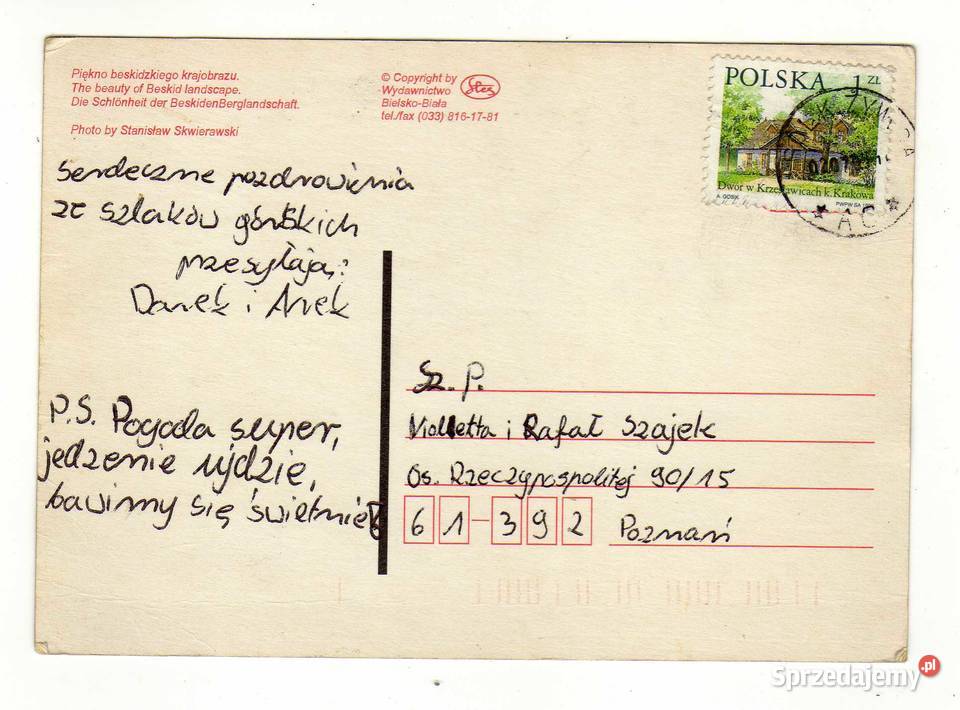 Piękno beskidzkiego krajobrazu.
The beauty of Beskid landscape.
Die Schlönheit der BeskidenBerglandschaft.
Photo by Stanisław Skwierawski
© Copyright by
Wydawnictwo
Bielsko-Biała
tel./fax (033) 816-17-81
POLSKA 1 ZŁ
Dwór w Krzesławicach k. Krakowa
PWPW SA
Serdeczne pozdrowienia
ze szlaków górskich
przesyłają:
Darek i Arek
P.S. Pogoda super,
jedzenie ujdzie,
bawimy się świetnie!
Sz. P.
Violletta i Rafał Szajek
Os. Rzeczypospolitej 90/15
61-392 Poznań
Sprzedajemy.pl